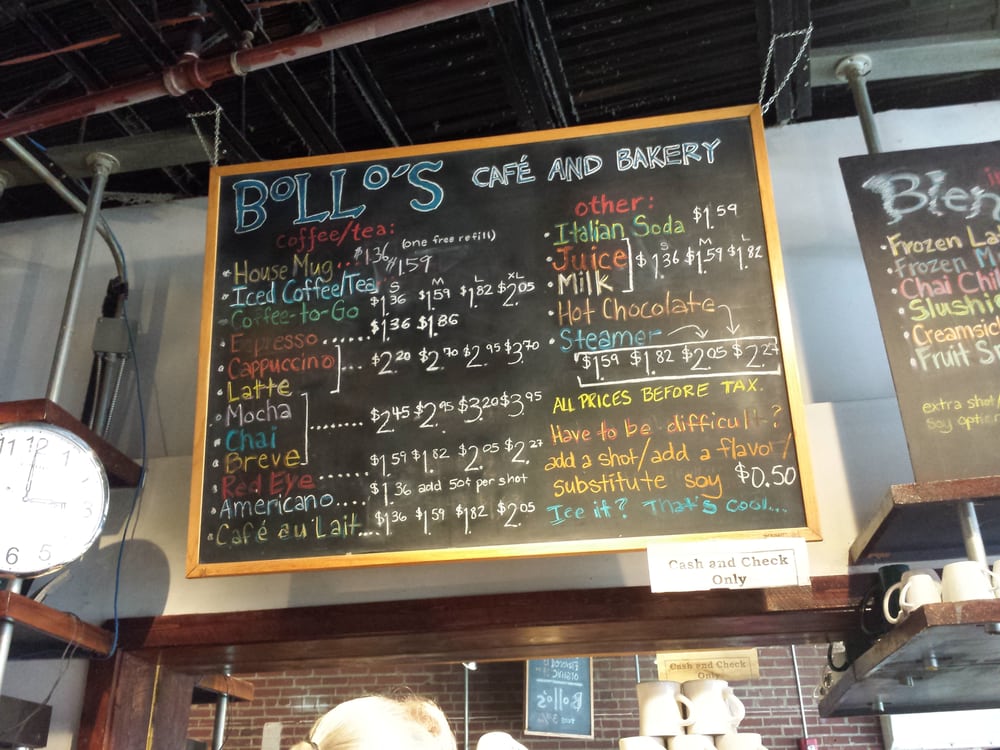 BOLLO'S CAFÉ AND BAKERY
coffee/tea:
•House Mug...$1.36 (one free refill)
•Iced Coffee/Tea $1.59
S M L XL
•Coffee-to-Go $1.36 $1.59 $1.82 $2.05
•Espresso...... $1.36 $1.86
•Cappuccino
•Latte
... $2.20 $2.70 $2.95 $3.70
•Mocha
•Chai
•Breve
........ $2.45 $2.95 $3.20 $3.95
•Red Eye...... $1.59 $1.82 $2.05 $2.27
•Americano.... $1.36 add 50¢ per shot
•Café au Lait... $1.36 $1.59 $1.82 $2.05
other:
•Italian Soda $1.59
S M L
•Juice
•Milk
$1.36 $1.59 $1.82
•Hot Chocolate
•Steamer
$1.59 $1.82 $2.05 $2.27
ALL PRICES BEFORE TAX.
Have to be difficult?
add a shot/add a flavor/
substitute soy $0.50
Ice it? That's cool...
Cash and Check
Only
•Frozen
•Frozen
•Chai
•Fruit
extra shot
soy
11 12 1
3
6 5
Cash and Check
Only
Bollo's